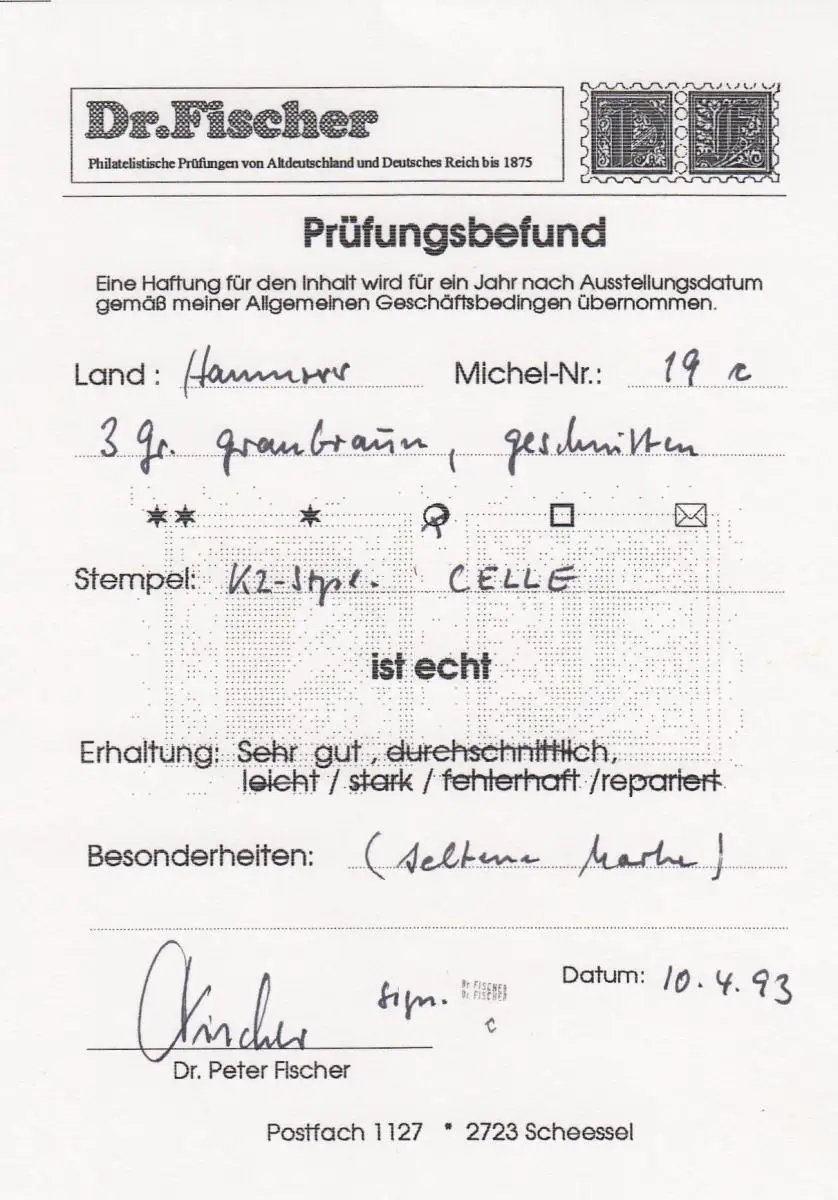 Dr.Fischer
Philatelistische Prüfungen von Altdeutschland und Deutsches Reich bis 1875
Prüfungsbefund
Eine Haftung für den Inhalt wird für ein Jahr nach Ausstellungsdatum
gemäß meiner Allgemeinen Geschäftsbedingen übernommen.
Land: Hannover Michel-Nr.: 19 c
3 Gr. graubraun, geschnitten
Stempel: K2-Stpl. CELLE
ist echt
Erhaltung: Sehr gut, durchschnittlich,
leicht / stark / fehlerhaft /repariert
Besonderheiten: (seltene Marke)
Fischer sign. Dr. FISCHER Datum: 10.4.93
Dr. FISCHER
c
Dr. Peter Fischer
Postfach 1127 * 2723 Scheessel